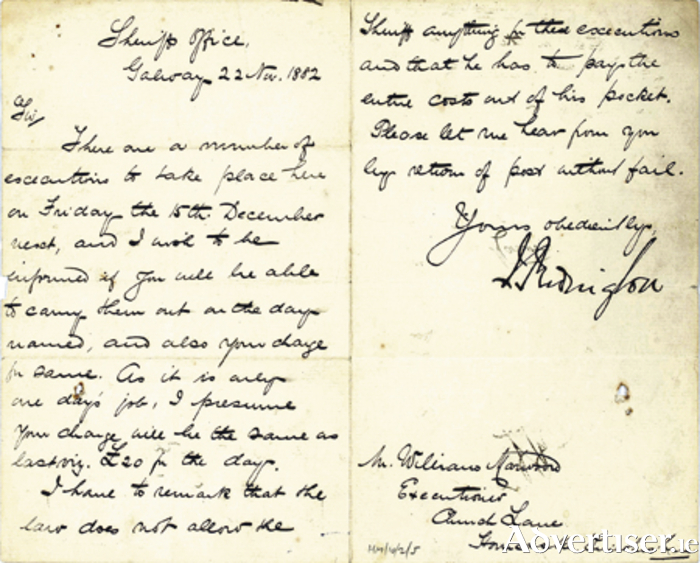 Sheriff's Office,
Galway 22 Nov. 1882
Sir/
There are a number of
executions to take place here
on Friday the 15th December
next, and I wish to be
informed if you will be able
to carry them out on the day
named, and also your charge
for same. As it is only
one day's job, I presume
your charge will be the same as
last viz. £20 for the day.
I have to remark that the
law does not allow the
Sheriff anything for these executions
and that he has to pay the
entire costs out of his pocket.
Please let me hear from you
by return of post without fail.
Yours obediently,
Redington
Mr. William Marwood
Executioner
Church Lane
Advertiser.ie